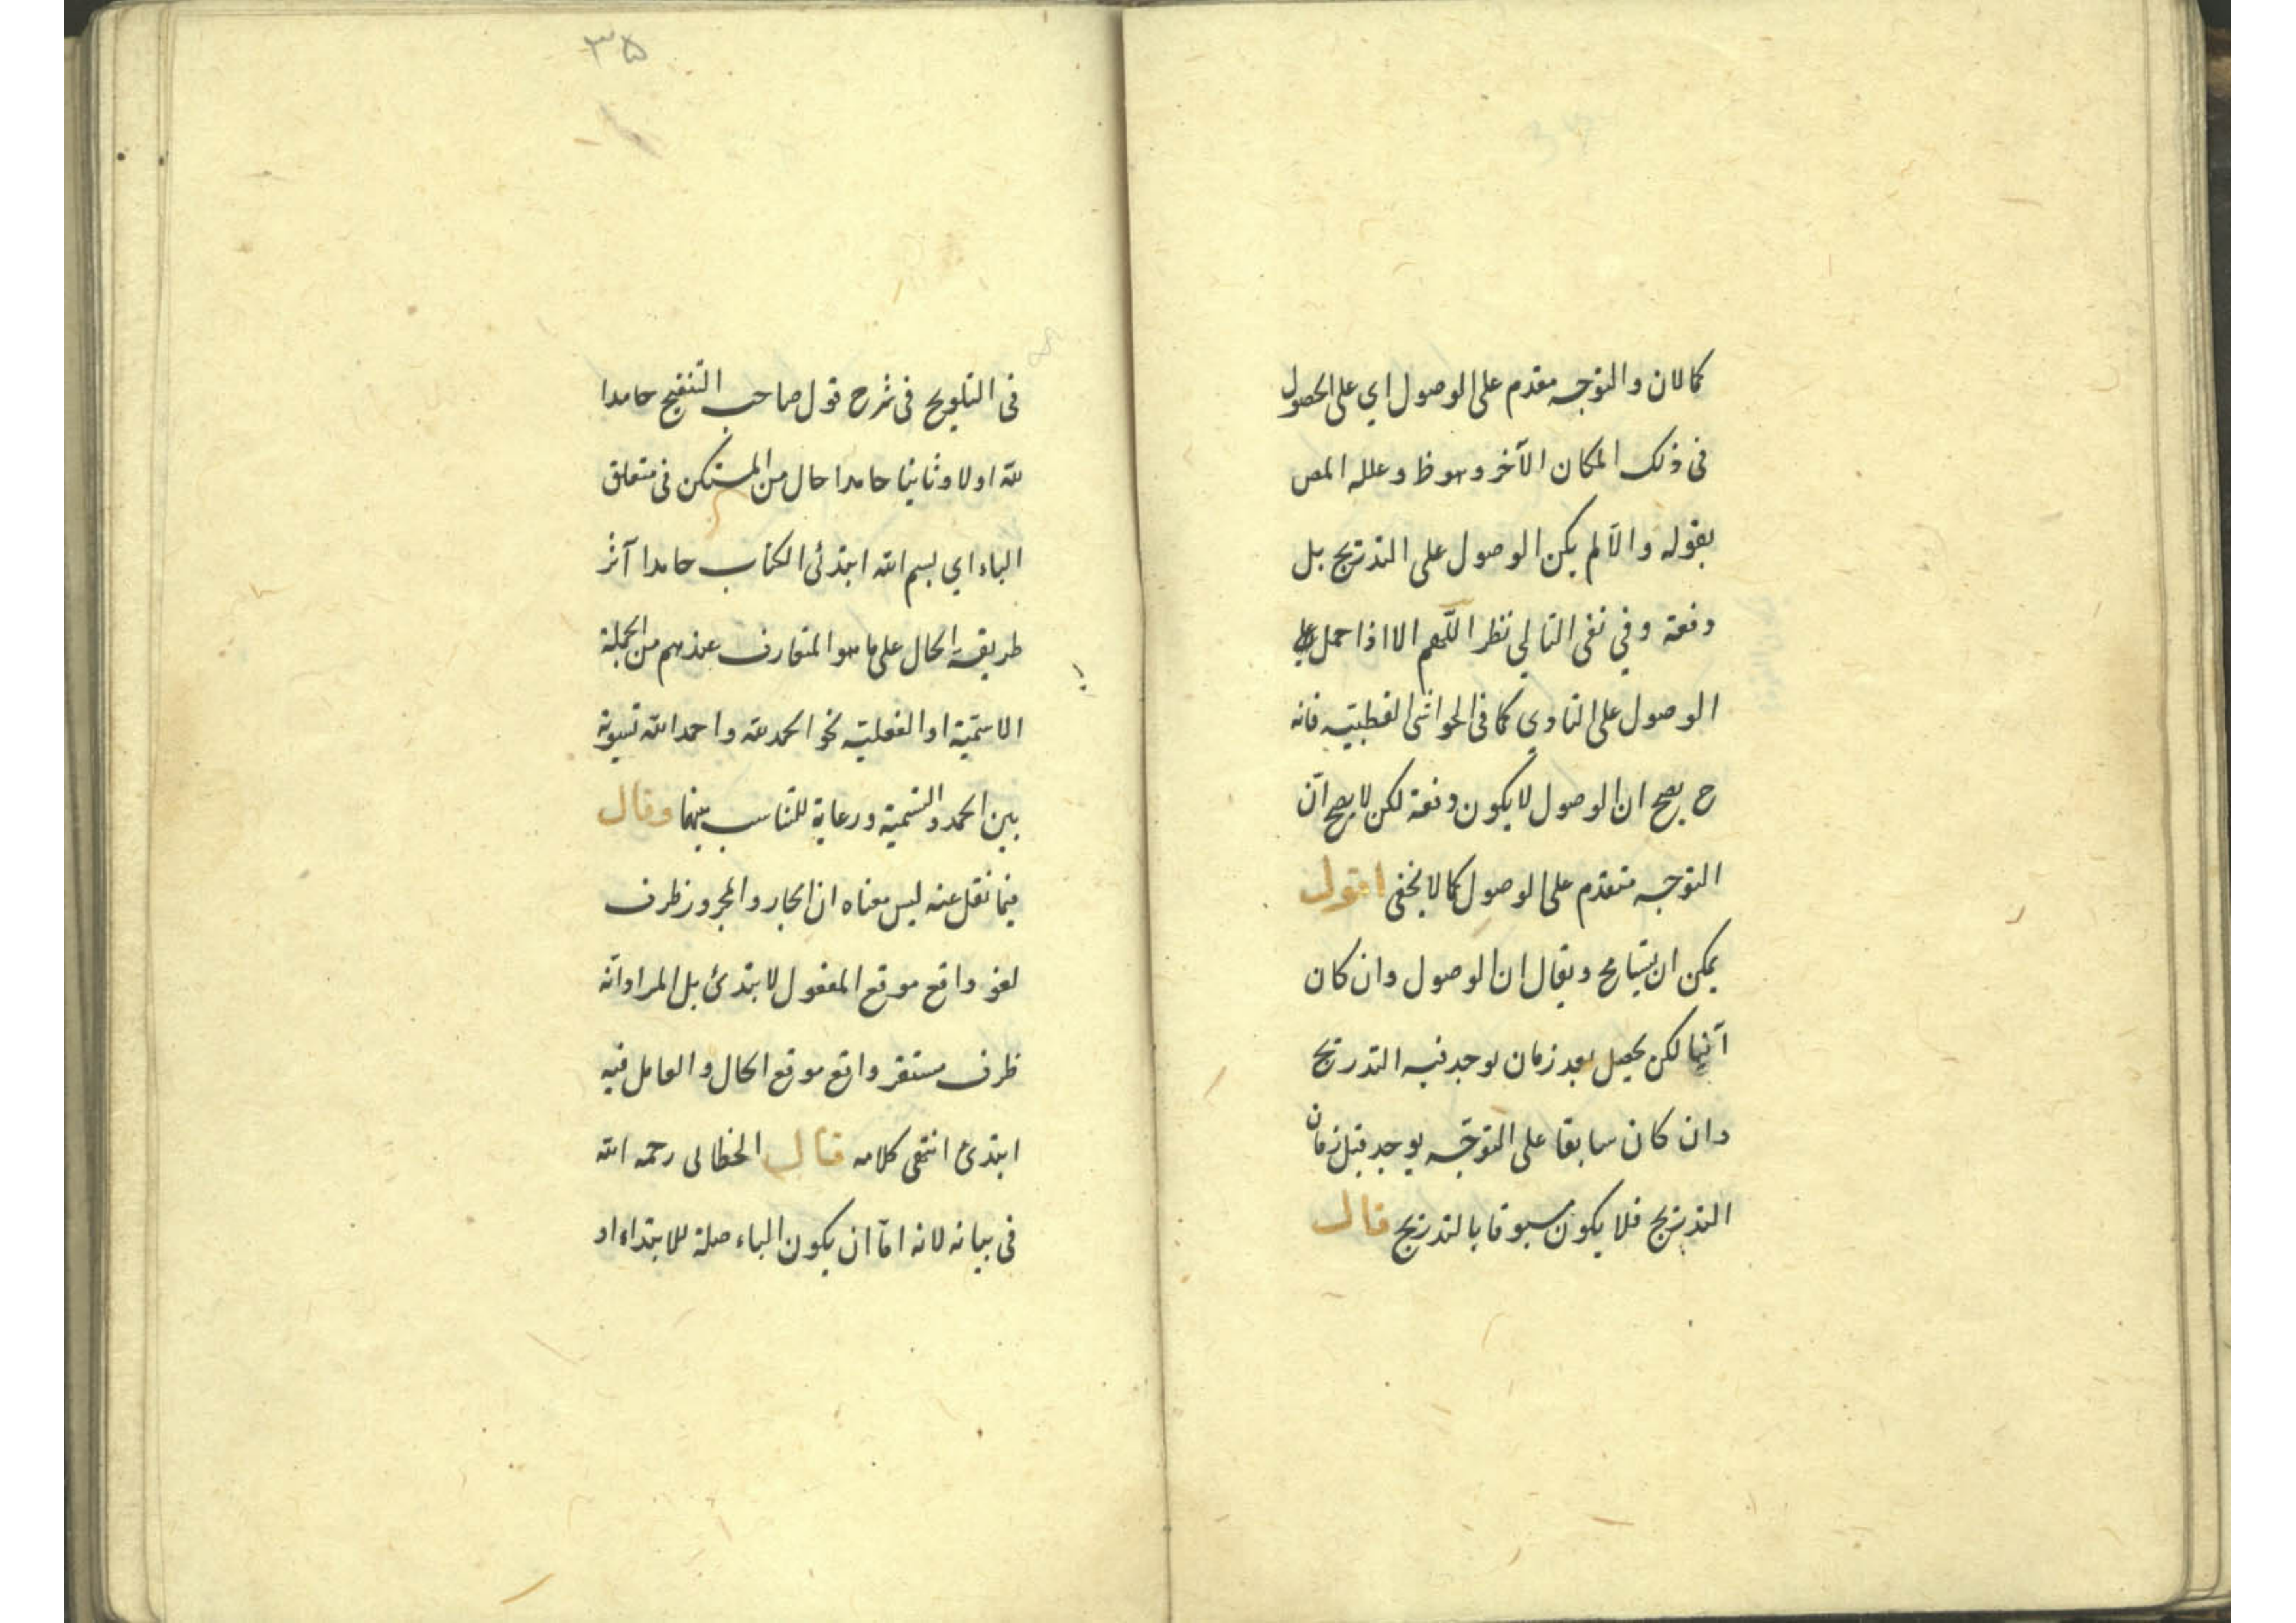 كمالان والتوجه مقدم على الوصول اي على الحصول
فى ذلك المكان الآخر وهو ظ وعلله المص
بقوله والا لم يكن الوصول على التدريج بل
دفعة وفي نفى التالي نظر اللهم الا اذا حمل
الوصول على التاوي كما فى الحواشى القطبية فانه
ح يصح ان الوصول لا يكون دفعة لكن لا يصح ان
التوجه متقدم على الوصول كما لا يخفى اقول
يمكن ان يتسامح ويقال ان الوصول وان كان
آنيا لكن يحصل بعد زمان يوجد فيه التدريج
وان كان سابقا على التوجه يوجد قبل زمان
التدريج فلا يكون مسبوقا بالتدريج قال
٣٥
فى التلويح فى شرح قول صاحب التنقيح حامدا
لله اولا وثانيا حامدا حال من المستكن فى متعلق
الباء اي بسم الله ابتدئ الكتاب حامدا آثر
طريقة الحال على ما هو المتعارف عندهم من الجملة
الاسمية او الفعلية نحو الحمد لله واحمد الله تسوية
بين الحمد والتسمية ورعاية للتناسب بينهما وقال
فيما نقل عنه ليس معناه ان الجار والمجرور ظرف
لغو واقع موقع المفعول لابتدئ بل المراد انه
ظرف مستقر واقع موقع الحال والعامل فيه
ابتدئ انتهى كلامه قال الخطالى رحمه الله
فى بيانه لانه اما ان يكون الباء صلة للابتداء او